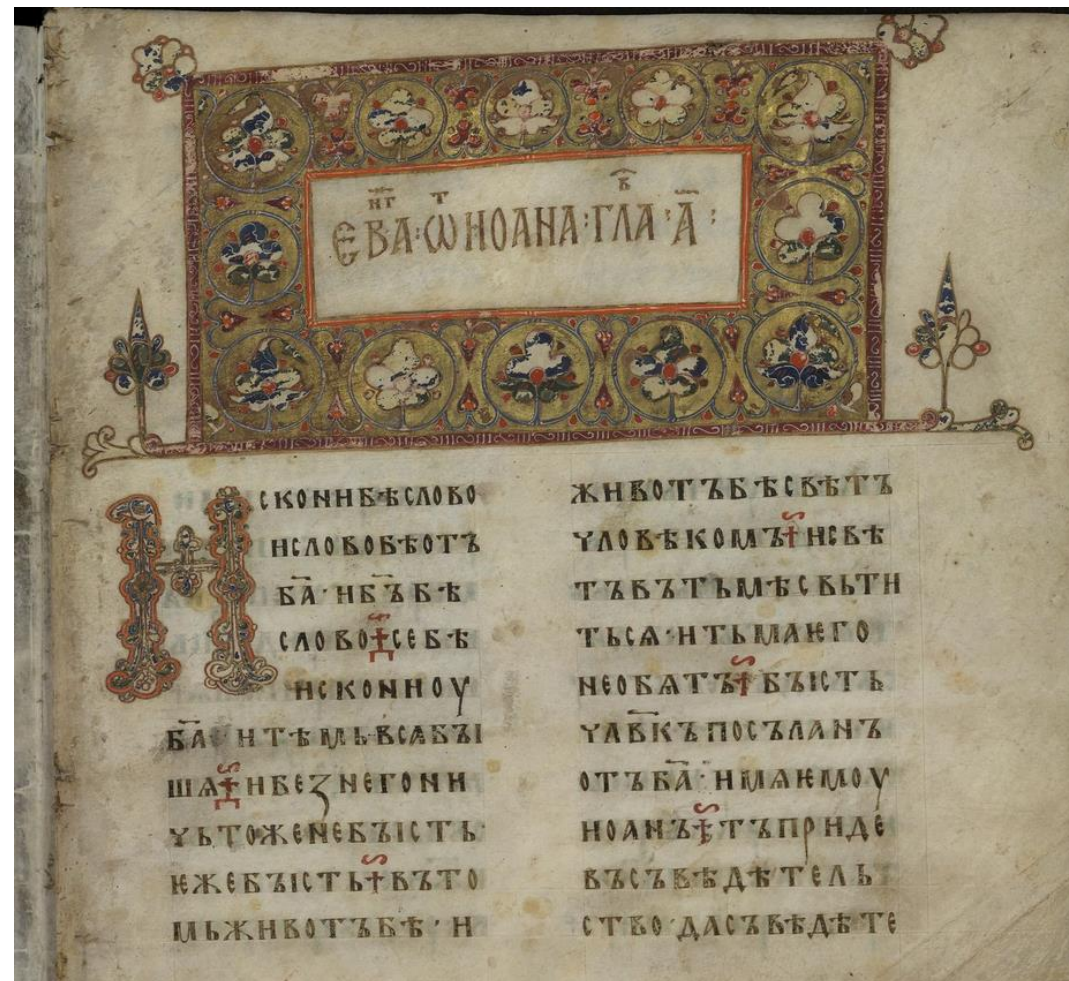 ЕВАⷩ҇ⷢ҇ : Ѡⷮ ИОАНА : ГЛАⷡ҇ : А҃ :
ИСКОНИБѢСЛОВО
ИСЛОВОБѢОТЪ
БА҃·ИБЪ҃БѢ
СЛОВО†СЕБѢ
ИСКОНИОУ
БА҃·ИТѢМЬВСѦБЪІ
ШѦ†ИБЕꙁНЕГОНИ
ЧЬТОЖЕНЕБЪІСТЬ·
ѤЖЕБЪІСТЬ†ВЪТО
МЬЖИВОТЪБѢ·И
ЖИВОТЪБѢСВѢТЪ
ЧЛОВѢКОМЪ†ИСВѢ
ТЪВЪТЬМѢСВЬТИ
ТЬСѦ·ИТЬМАѤГО
НЕОБѦТЪ†БЪІСТЬ
ЧЛ҃ВКЪПОСЪЛАНЪ
ОТЪБА҃·ИМѦѤМОУ
ИОАНЪ†ТЪПРИДЕ
ВЪСЪВѢДѢТЕЛЬ
СТВО·ДАСЪВѢДѢТЕ